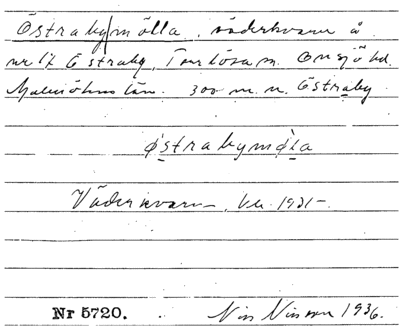 Östraby/mölla, väderkvarn å
nr 17 Östraby, Torlösa sn. Onsjö hd.
Malmöhus län. 300 m. n. Östraby
østrabymøla
Väderkvarn, 1921-
Nr 5720.
Nils Nilsson 1936.